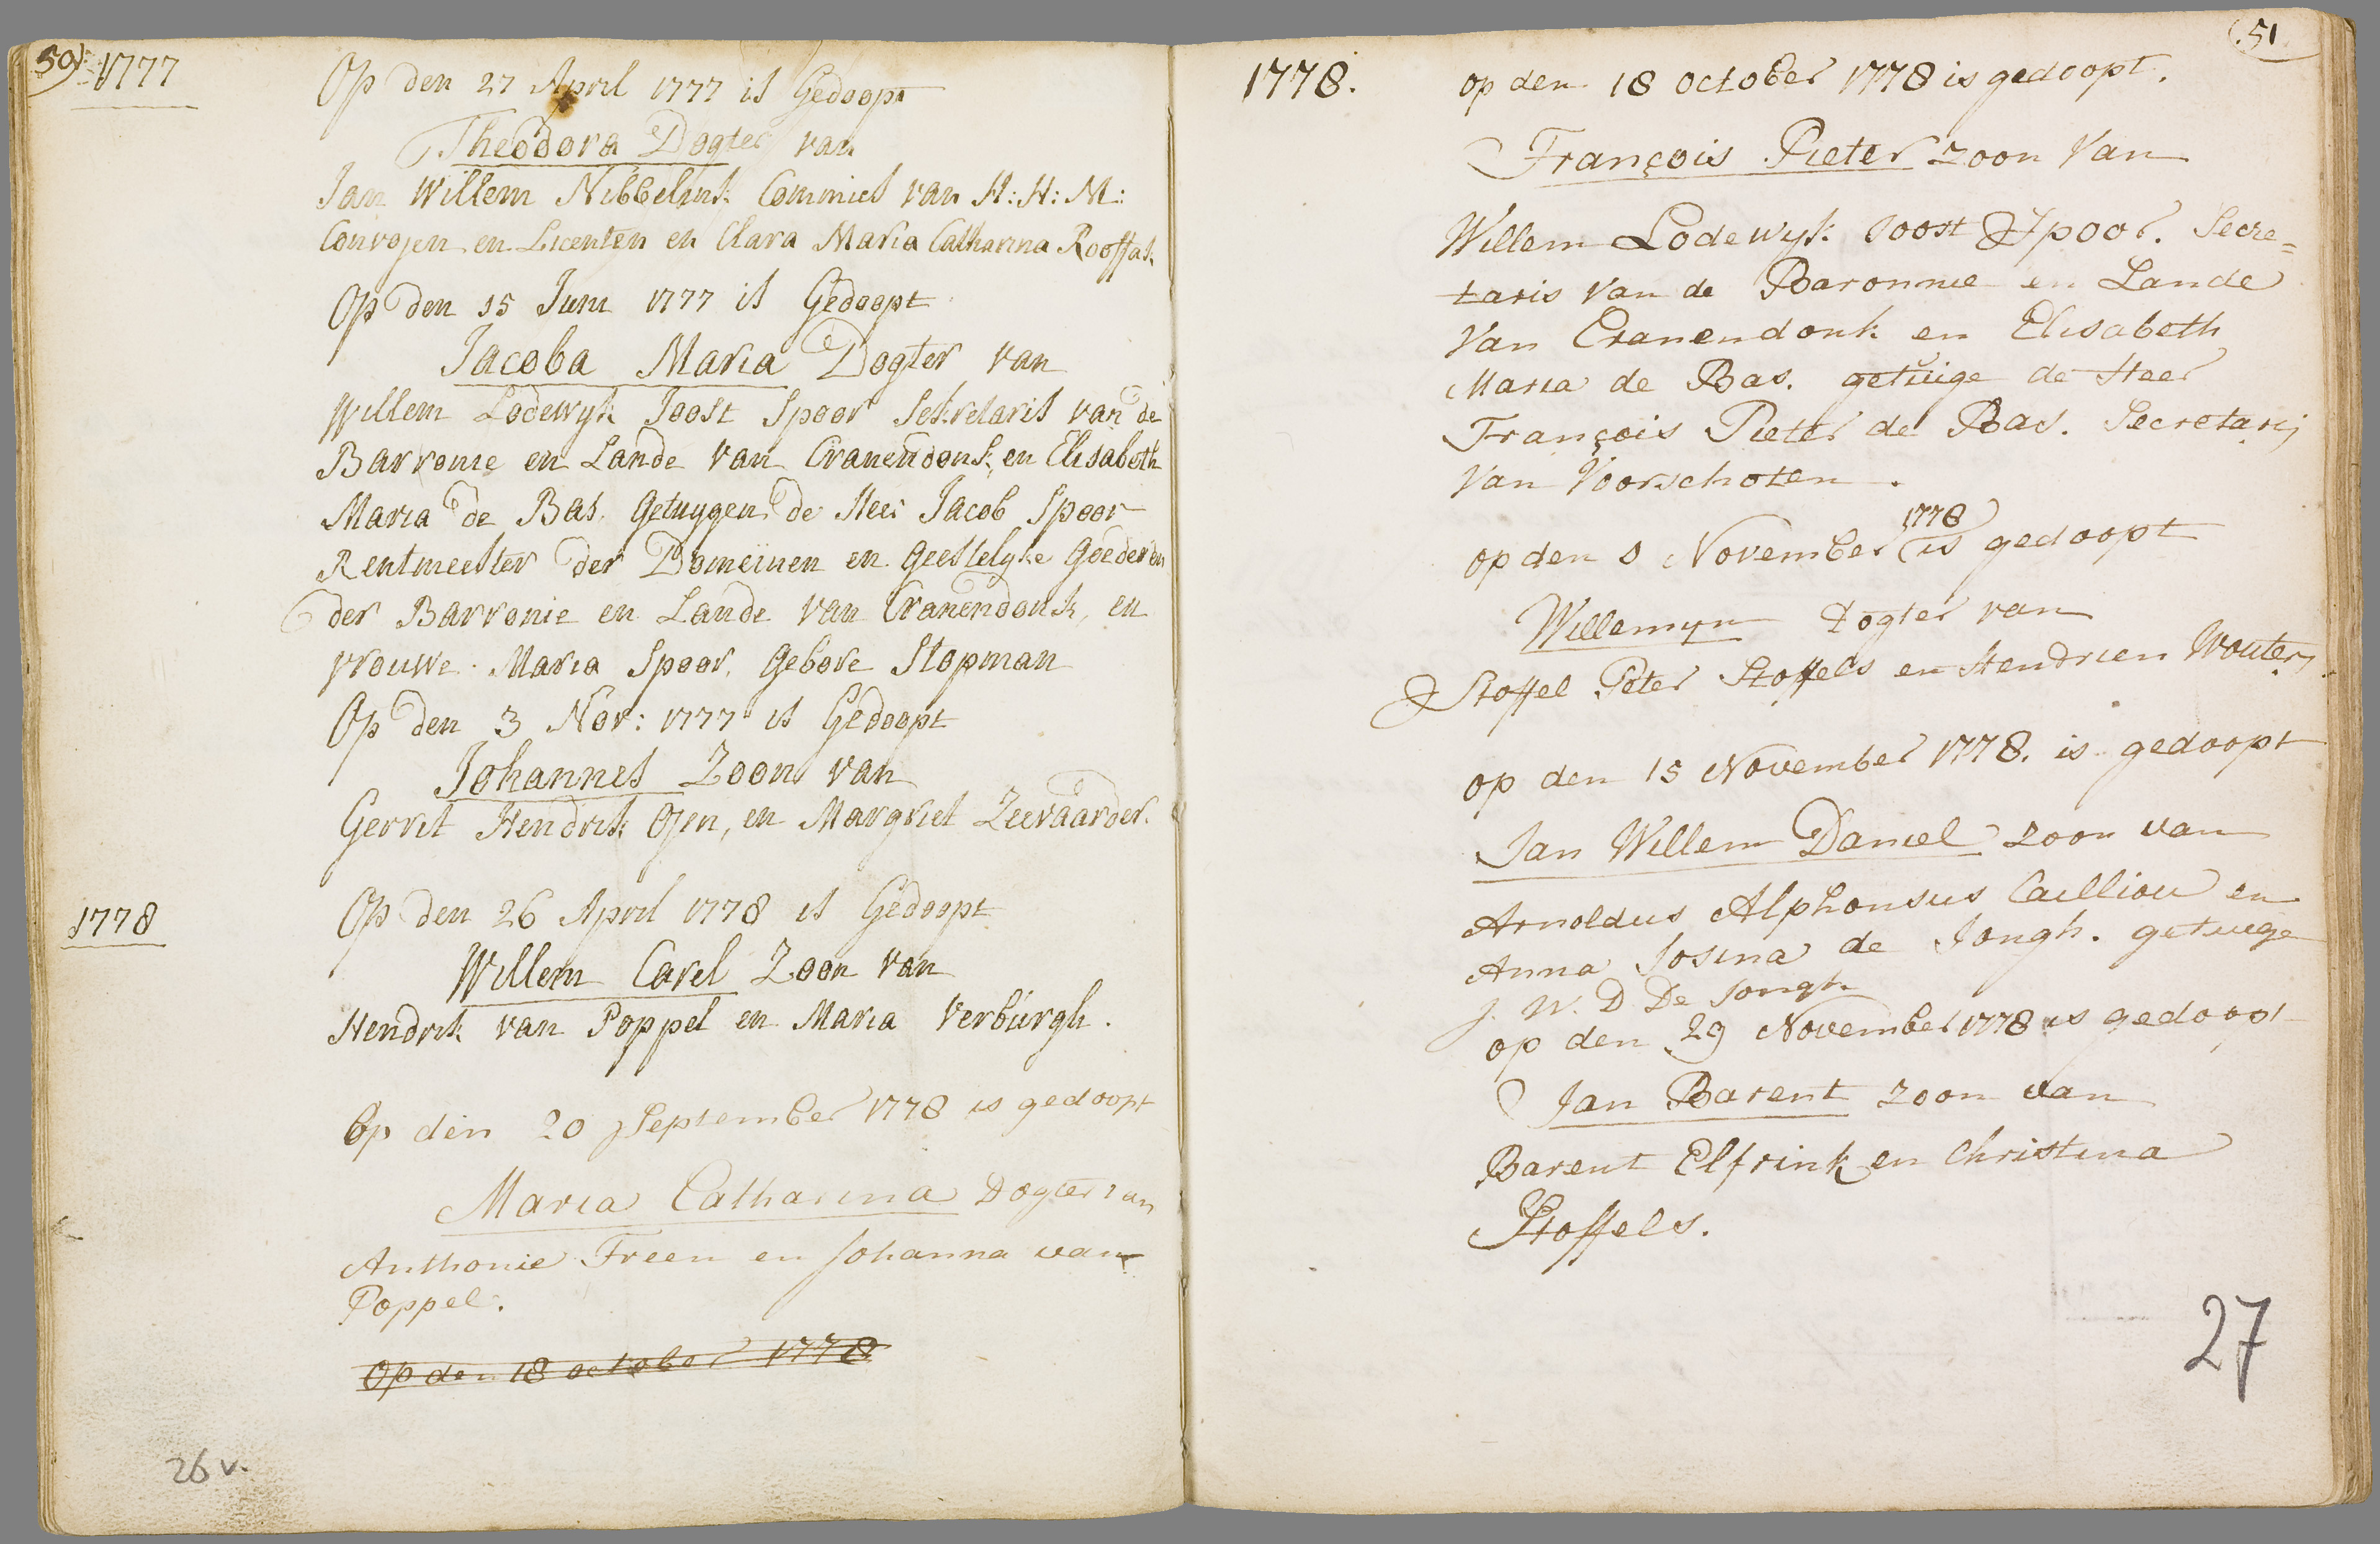 50) 1777
Op den 27 April 1777 is Gedoopt
Theodora Dogter van
Jan Willem Nibbelink Commies van H: H: M:
Convojen en Licenten en Clara Maria Catharina
Op den 15 Juni 1777 is Gedoopt
Jacoba Maria Dogter van
Willem Lodewyk Joost Spoor Sekretaris van de
Barronie en Lande van Cranendonk, en Elisabeth
Maria de Bas. Getuygen de Heer Jacob Spoor
Rentmeester der Domeinen en Geestelyke Goederen
der Barronie en Lande van Cranendonk, en
vrouwe Maria Spoor, Gebore Stopman
Op den 3 Nov: 1777 is Gedoopt
Johannes Zoon van
Gerrit Hendrik Ojen, en Margriet Zeevaarder.
1778
Op den 26 April 1778 is Gedoopt
Willem Carel Zoon van
Hendrik van Poppel en Maria Verburgh.
Op den 20 September 1778 is gedoopt
Maria Catharina Dogter van
Anthonie Freen en Johanna van
Poppel.
Op den 18 october 1778
26 v.
51
1778.
op den 18 october 1778 is gedoopt.
François Pieter zoon van
Willem Lodewyk Joost Spoor. Secre=
taris van de Baronnie en Lande
van Cranendonk en Elisabeth
Maria de Bas. getuige de Heer
François Pieter de Bas. Secretaris
van Voorschoten.
1778
op den 8 November is gedoopt
Willemyn Dogter van
Stoffel Peter Stoffels en Hendrien Wouters
op den 15 November 1778. is gedoopt
Jan Willem Daniel zoon van
Arnoldus Alphonsus Cailliou en
Anna Josina de Jongh. getuige
J. W. D De Jongh
op den 29 November 1778 is gedoopt
Jan Barent zoon van
Barent Elfrink en Christina
Stoffels.
27